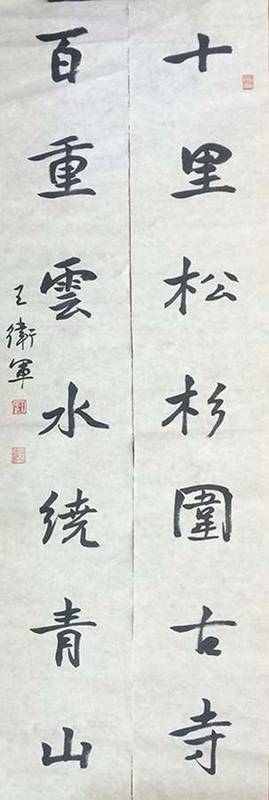 十里松杉圍古寺
百重雲水繞青山
王衛軍